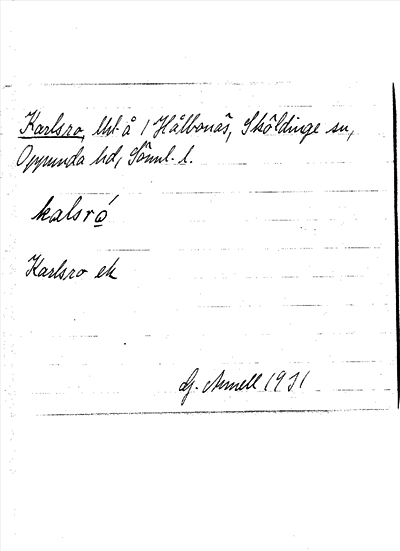 Karlsro, lht å 1 Hålbonäs, Sköldinge sn,
Oppunda hd, Söml. l.
kalsró
Karlsro ek
G. Arnell 1931